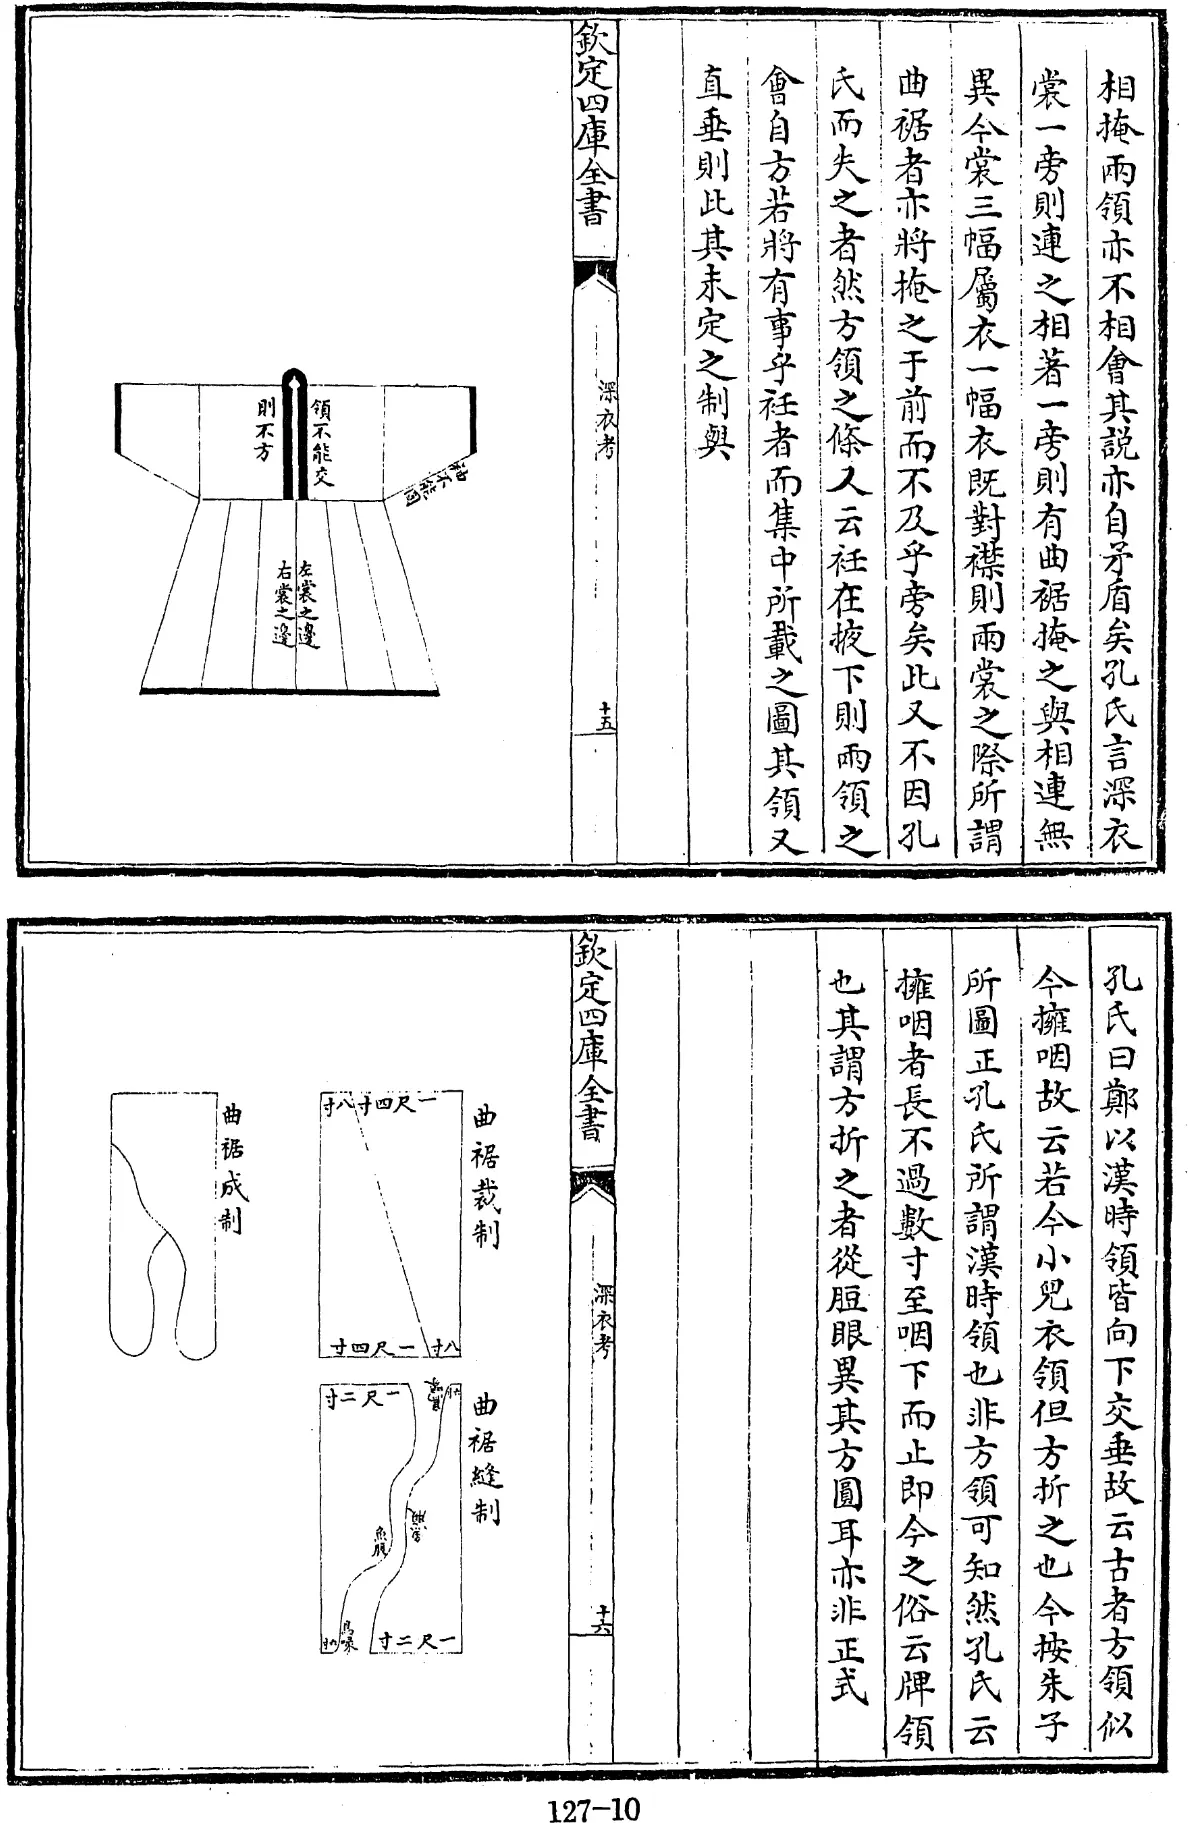 相掩兩領亦不相會其説亦自矛盾矣孔氏言深衣
裳一旁則連之相著一旁則有曲裾掩之與相連無
異今裳三幅屬衣一幅衣既對襟則兩裳之際所謂
曲裾者亦將掩之于前而不及乎旁矣此又不因孔
氏而失之者然方領之條又云衽在掖下則兩領之
會自方若將有事乎衽者而集中所載之圖其領又
直垂則此其未定之制與
欽定四庫全書
深衣考
十五
領不能交
則不方
袖不能圓
左裳之邊
右裳之邊
孔氏曰鄭以漢時領皆向下交垂故云古者方領似
今擁咽故云若今小兒衣領但方折之也今按朱子
所圖正孔氏所謂漢時領也非方領可知然孔氏云
擁咽者長不過數寸至咽下而止即今之俗云牌領
也其謂方折之者從脰眼異其方圓耳亦非正式
欽定四庫全書
深衣考
十六
曲裾裁制
一尺四寸
八寸
八寸
一尺四寸
曲裾縫制
一尺二寸
魚腹
烏喙
一尺二寸
曲裾成制
127-10